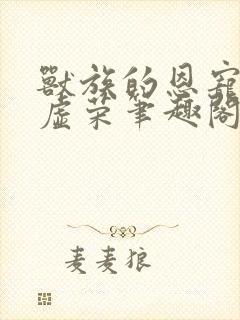 獸族的恩寵
虛荣笔趣閣
麦麦狼